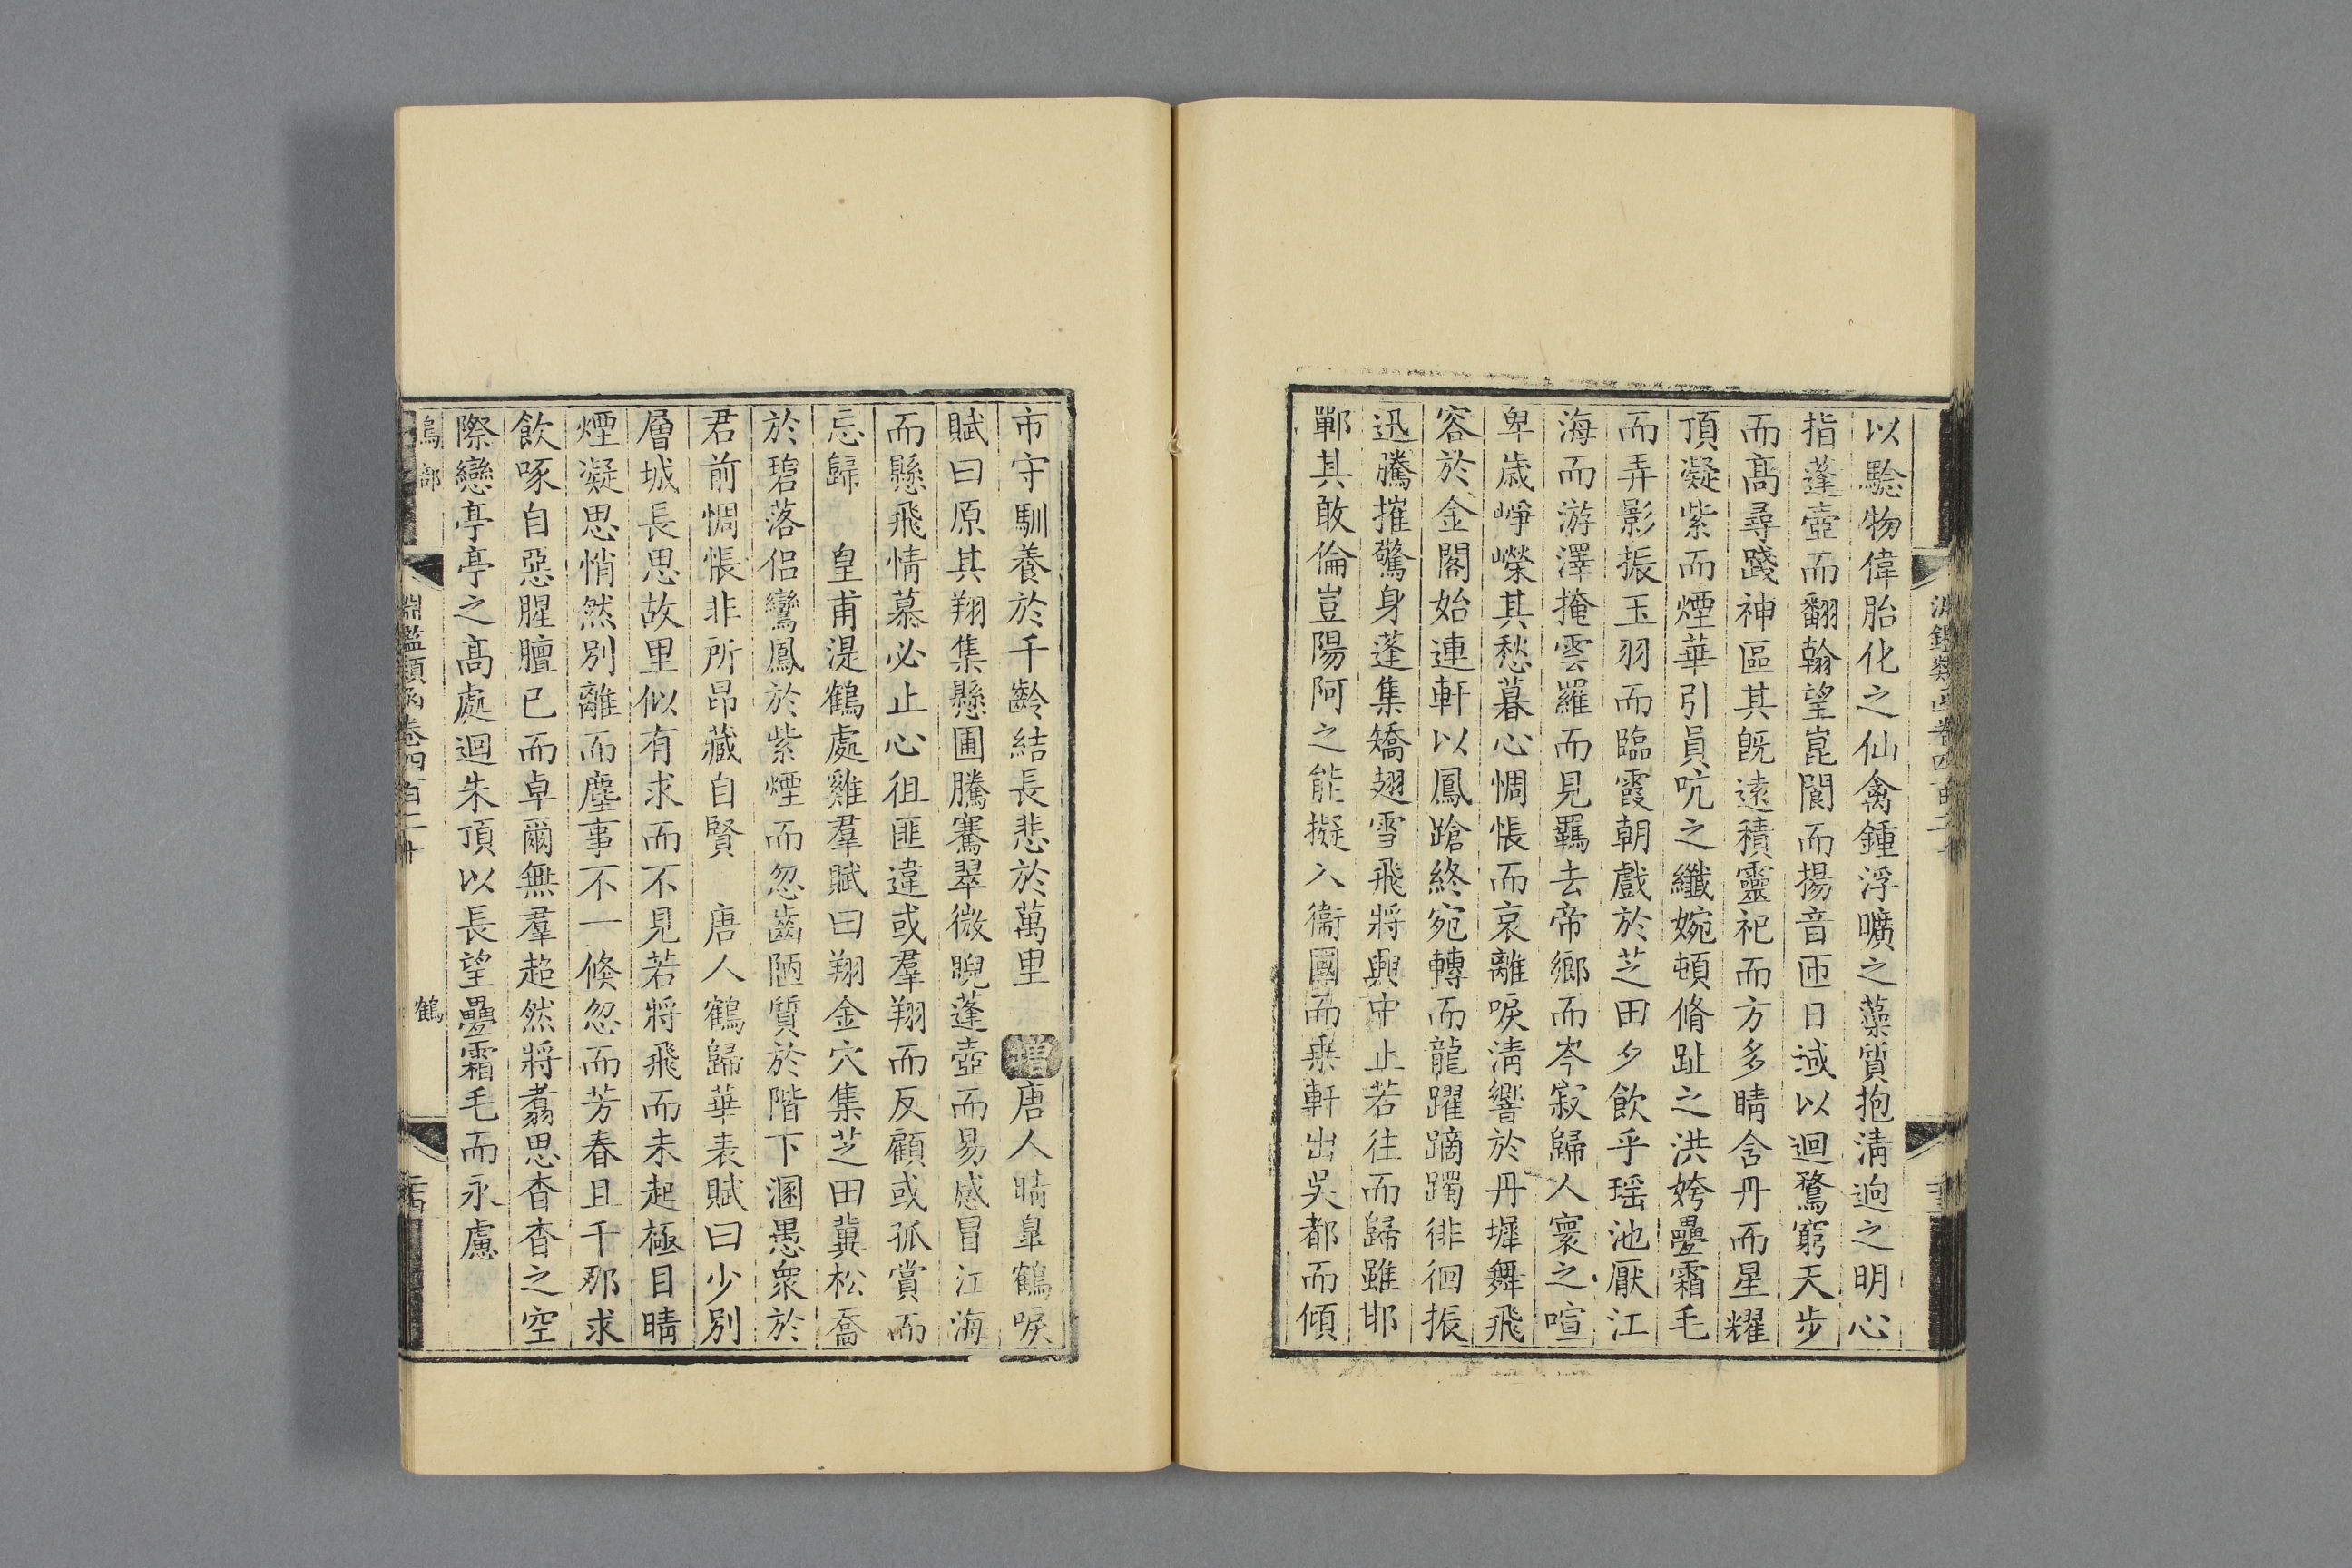 淵鑑類函卷四百二十
以驗物偉胎化之仙禽鍾浮曠之藻質抱清逈之明心
指蓬壺而翻翰望崑閬而揚音匝日域以迴鶩窮天步
而髙尋踐神區其旣逺積靈祀而方多睛含丹而星耀
頂凝紫而煙華引員吭之纖婉頓脩趾之洪姱疊霜毛
而弄影振玉羽而臨霞朝戲於芝田夕飲乎瑶池厭江
海而游澤掩雲羅而見羈去帝鄉而岑寂歸人寰之喧
卑歳崢嶸其愁暮心惆悵而哀離唳淸響於丹墀舞飛
容於金閣始連軒以鳳蹌終宛轉而龍躍躑躅徘徊振
迅騰摧驚身蓬集矯翅雪飛將興中止若往而歸雖邯
鄲其敢倫豈陽阿之能擬入衞國而乗軒出吳都而傾
市守馴養於千齡結長悲於萬里 增唐人晴臯鶴唳
賦曰原其翔集懸圃騰騫翠微睨蓬壺而易感冒江海
而懸飛情慕必止心徂匪違或羣翔而反顧或孤賞而
忘歸 皇甫湜鶴處雞羣賦曰翔金穴集芝田冀松喬
於碧落侶鸞鳳於紫煙而忽齒陋質於階下溷愚衆於
君前惆悵非所昂藏自賢 唐人鶴歸華表賦曰少別
層城長思故里似有求而不見若將飛而未起極目晴
煙凝思悄然別離而塵事不一倐忽而芳春且千那求
飲啄自惡腥膻已而卓爾無羣超然將翥思杳杳之空
際戀亭亭之髙處迴朱頂以長望疊霜毛而永慮
鳥部 淵鑑類函卷四百二十 鶴